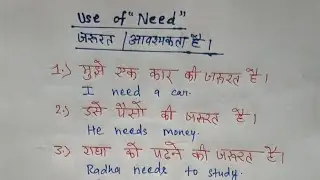 Use of "Need"
जरूरत / आवश्यकता है।
1.) मुझे एक कार की जरूरत है।
I need a car.
2.) उसे पैसों की जरूरत है।
He needs money.
3.) राधा को पढ़ने की जरूरत है।
Radha needs to study.